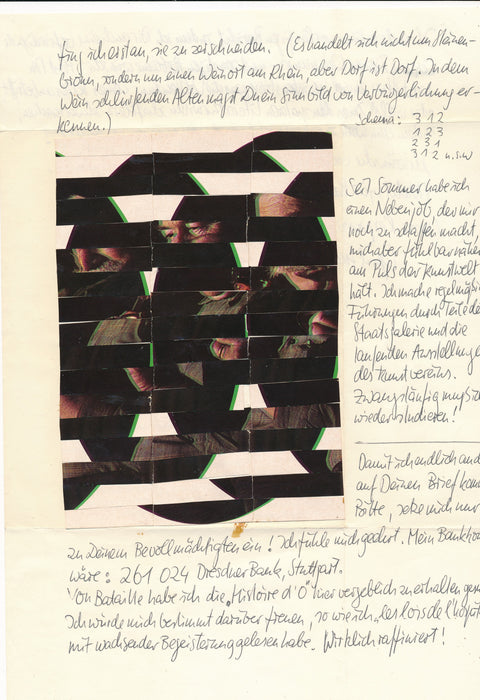 fing ich erst an, sie zu zerschneiden. (Es handelt sich nicht um Steinen-
bronn, sondern um einen Weinort am Rhein, aber Dorf ist Dorf. In dem
Wein schlürfenden Alten magst Du ein Sinnbild von Verbürgerlichung er-
kennen.)
Schema: 3 1 2
1 2 3
2 3 1
3 1 2 u.s.w
Seit Sommer habe ich
einen Nebenjob, der mir
noch zu schaffen macht,
mich aber fühlbar näher
am Puls der Kunstwelt
hält. Ich mache regelmäßig
Führungen durch Teile de
Staatsgalerie und die
laufenden Ausstellunge
des Kunstvereins.
Zwangsläufig muß ich
wieder studieren!
Damit ich endlich auch
auf Deinen Brief kom
Bitte, setze mich nur
zu Deinem Bevollmächtigten ein! Ich fühle mich geehrt. Mein Bankkon
wäre: 261 024 Dresdner Bank, Stuttgart.
Von Bataille habe ich die „Histoire d'O" hier vergeblich zu erhalten gesu
Ich würde mich bestimmt darüber freuen, so wie ich „les lois de l'hospit
mit wachsender Begeisterung gelesen habe. Wirklich raffiniert!